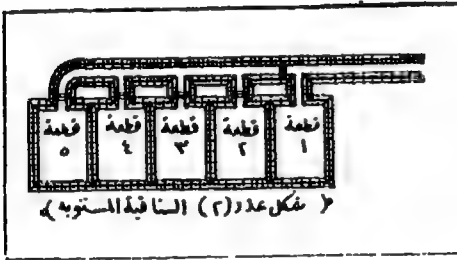 قطعة قطعة قطعة قطعة قطعة
١ ٢ ٣ ٤ ٥
( شكل عدد (٢) الساقية المستوية )